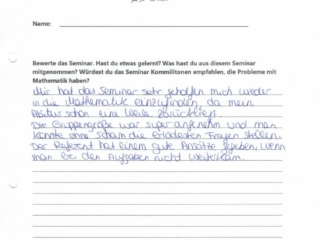 Name:
Bewerte das Seminar. Hast du etwas gelernt? Was hast du aus diesem Seminar
mitgenommen? Würdest du das Seminar Kommilitonen empfehlen, die Probleme mit
Mathematik haben?
Mir hat das Seminar sehr geholfen mich wieder
in die Mathematik einzufinden, da mein
Abitur schon eine Weile zurückliegt.
Die Gruppengröße war super angenehm und man
konnte ohne Scham die blödesten Fragen stellen.
Der Referent hat einem gute Ansätze gegeben, wenn
man bei den Aufgaben nicht weiterkam.